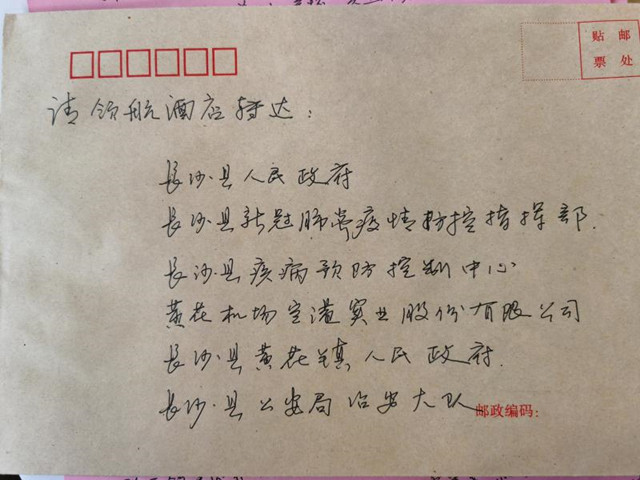 贴 邮
票 处
请领航酒店转达：
长沙县人民政府
长沙县新冠肺炎疫情防控指挥部.
长沙县疾病预防控制中心
黄花机场空港实业股份有限公司
长沙县黄花镇人民政府.
长沙县公安局治安大队
邮政编码: